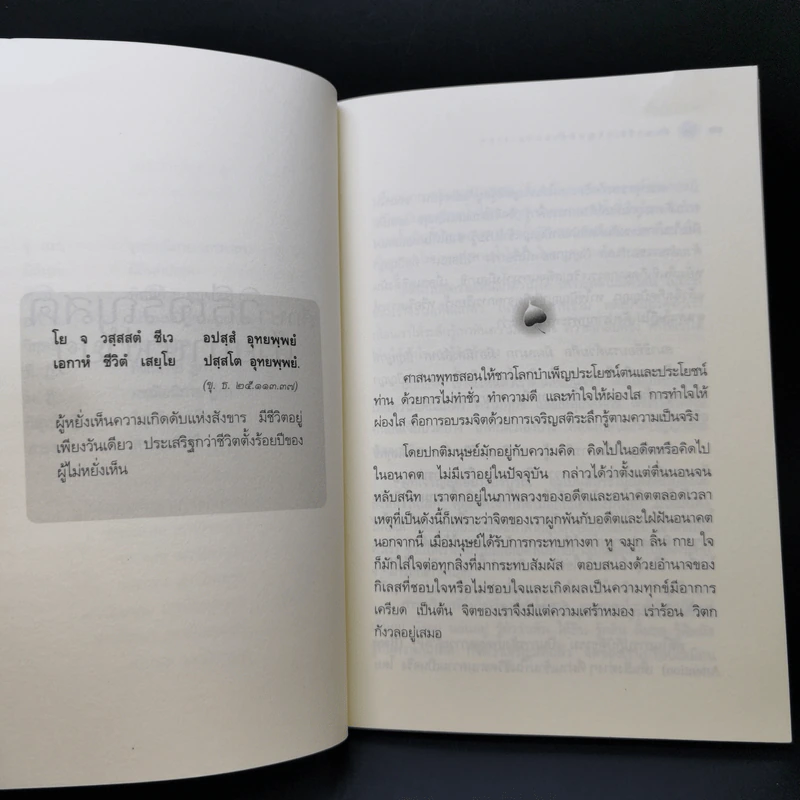 โย จ วสฺสสตํ ชีเว อปสฺสํ อุทยพฺพยํ
เอกาหํ ชีวิตํ เสยฺโย ปสฺสโต อุทยพฺพยํ.
(ขุ. ธ. ๒๕.๑๑๓.๓๗)
ผู้หยั่งเห็นความเกิดดับแห่งสังขาร มีชีวิตอยู่
เพียงวันเดียว ประเสริฐกว่าชีวิตตั้งร้อยปีของ
ผู้ไม่หยั่งเห็น
ศาสนาพุทธสอนให้ชาวโลกบำเพ็ญประโยชน์ตนและประโยชน์
ท่าน ด้วยการไม่ทำชั่ว ทำความดี และทำใจให้ผ่องใส การทำใจให้
ผ่องใส คือการอบรมจิตด้วยการเจริญสติระลึกรู้ตามความเป็นจริง
โดยปกติมนุษย์มักอยู่กับความคิด คิดไปในอดีตหรือคิดไป
ในอนาคต ไม่มีเราอยู่ในปัจจุบัน กล่าวได้ว่าตั้งแต่ตื่นนอนจน
หลับสนิท เราตกอยู่ในภาพลวงของอดีตและอนาคตตลอดเวลา
เหตุที่เป็นดังนี้ก็เพราะว่าจิตของเราผูกพันกับอดีตและใฝ่ฝันอนาคต
นอกจากนี้ เมื่อมนุษย์ได้รับการกระทบทางตา หู จมูก ลิ้น กาย ใจ
ก็มักใส่ใจต่อทุกสิ่งที่มากระทบสัมผัส ตอบสนองด้วยอำนาจของ
กิเลสที่ชอบใจหรือไม่ชอบใจและเกิดผลเป็นความทุกข์มีอาการ
เครียด เป็นต้น จิตของเราจึงมีแต่ความเศร้าหมอง เร่าร้อน วิตก
กังวลอยู่เสมอ